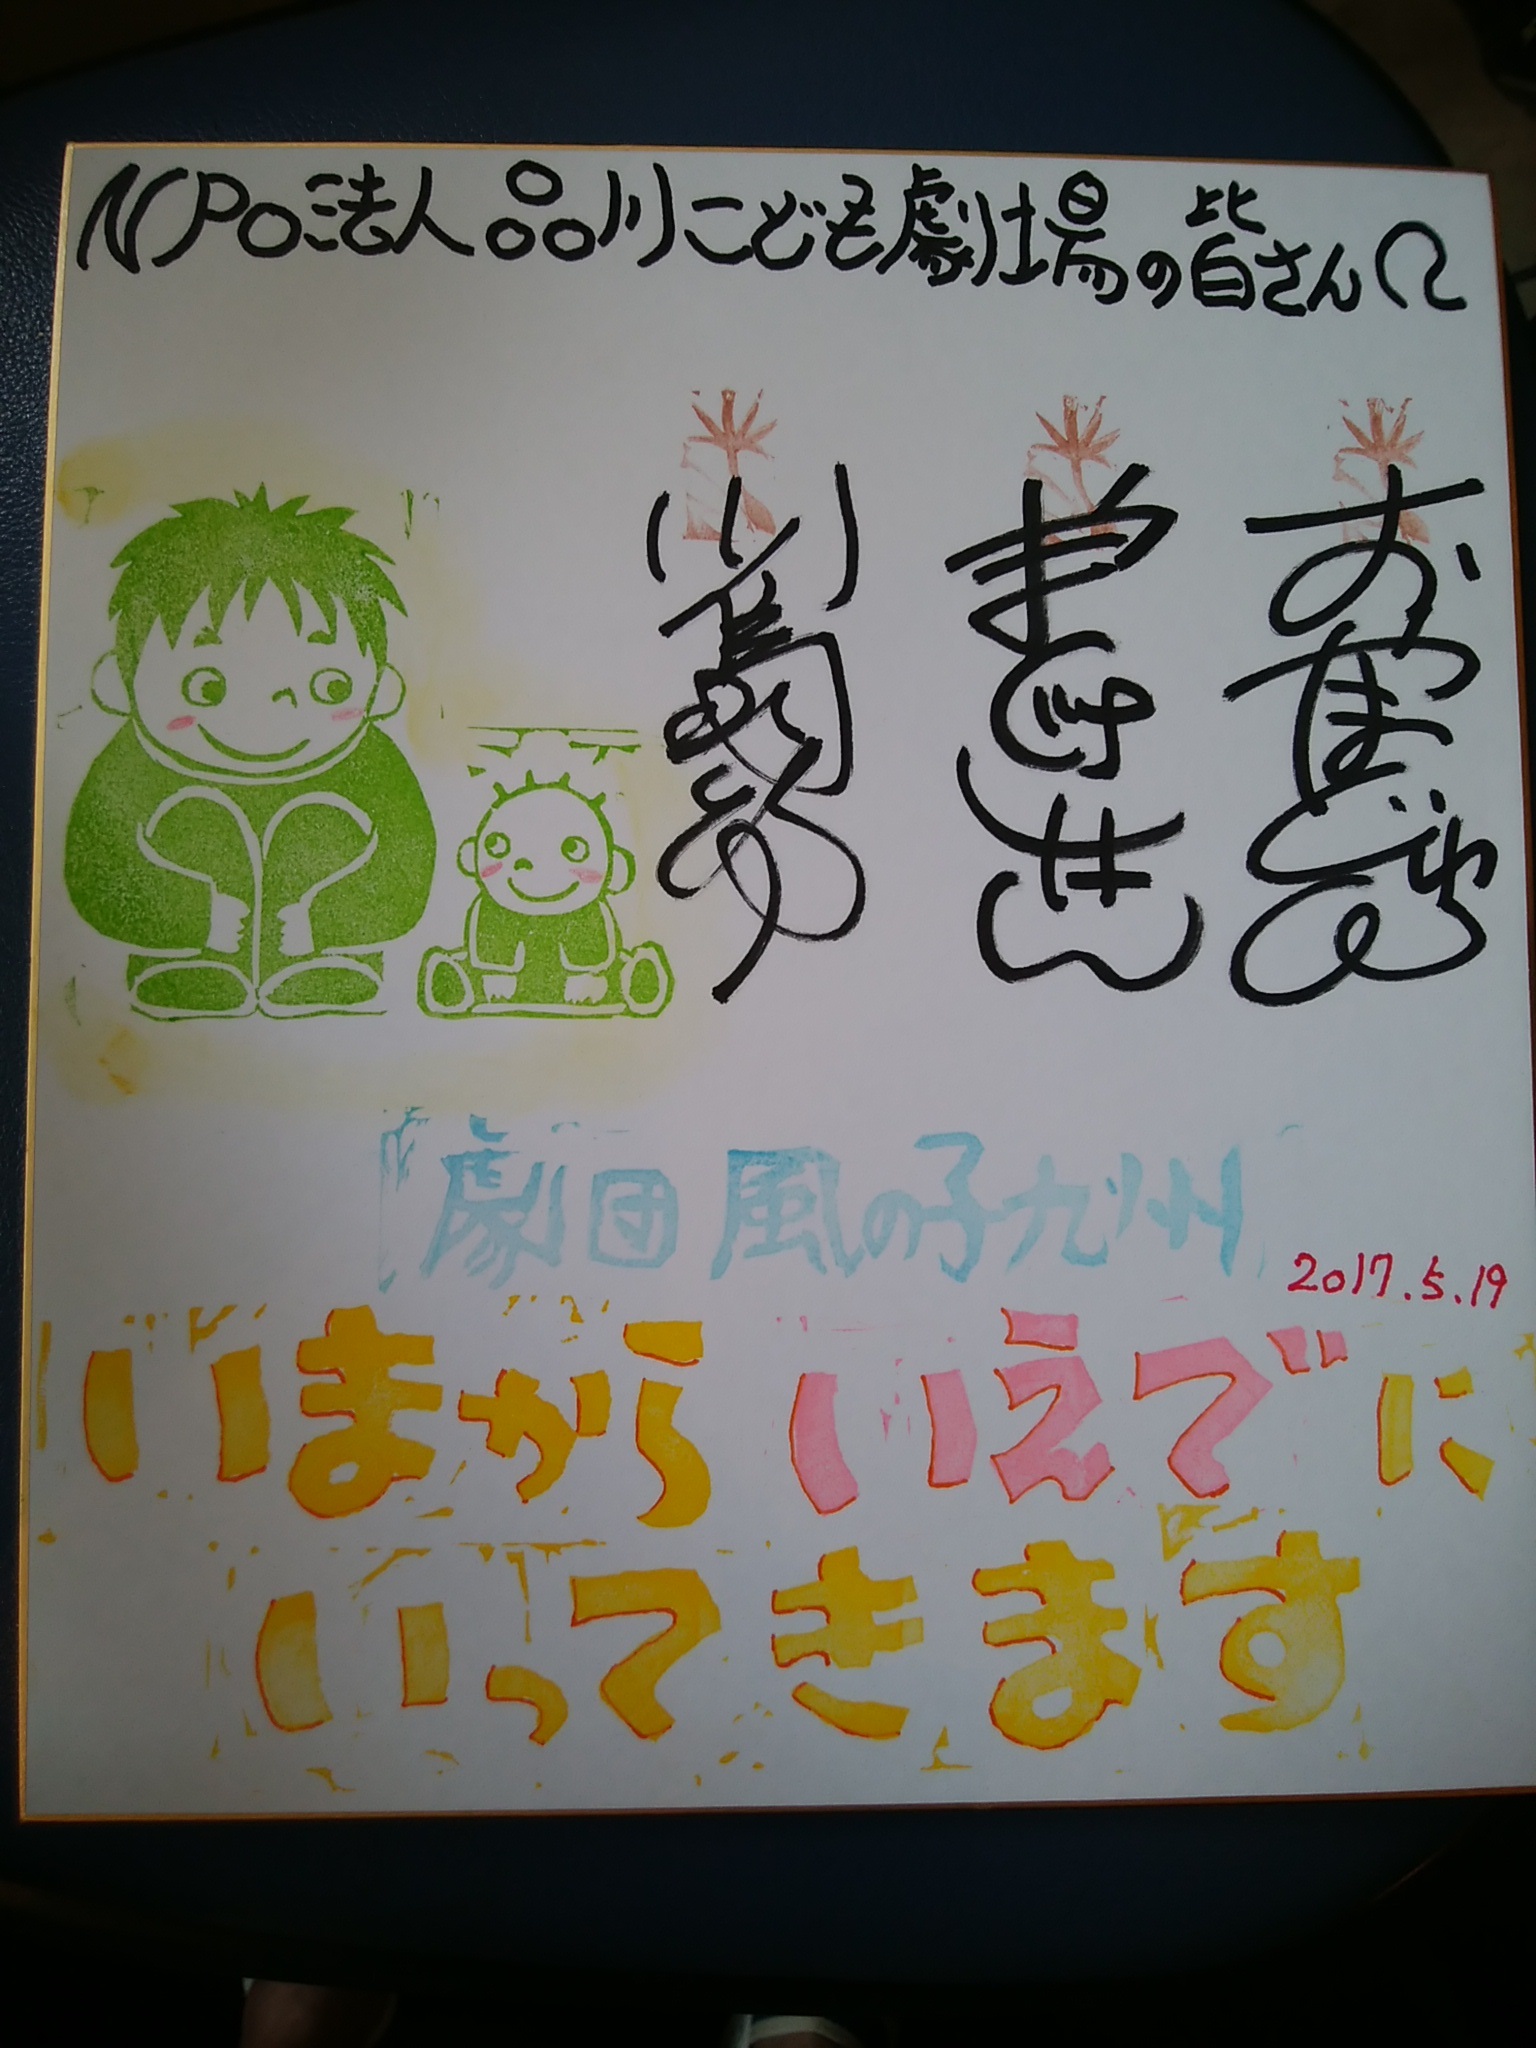 NPO法人品川こども劇場の皆さんへ
劇団風の子九州
2017.5.19
いまからいえでに
いってきます